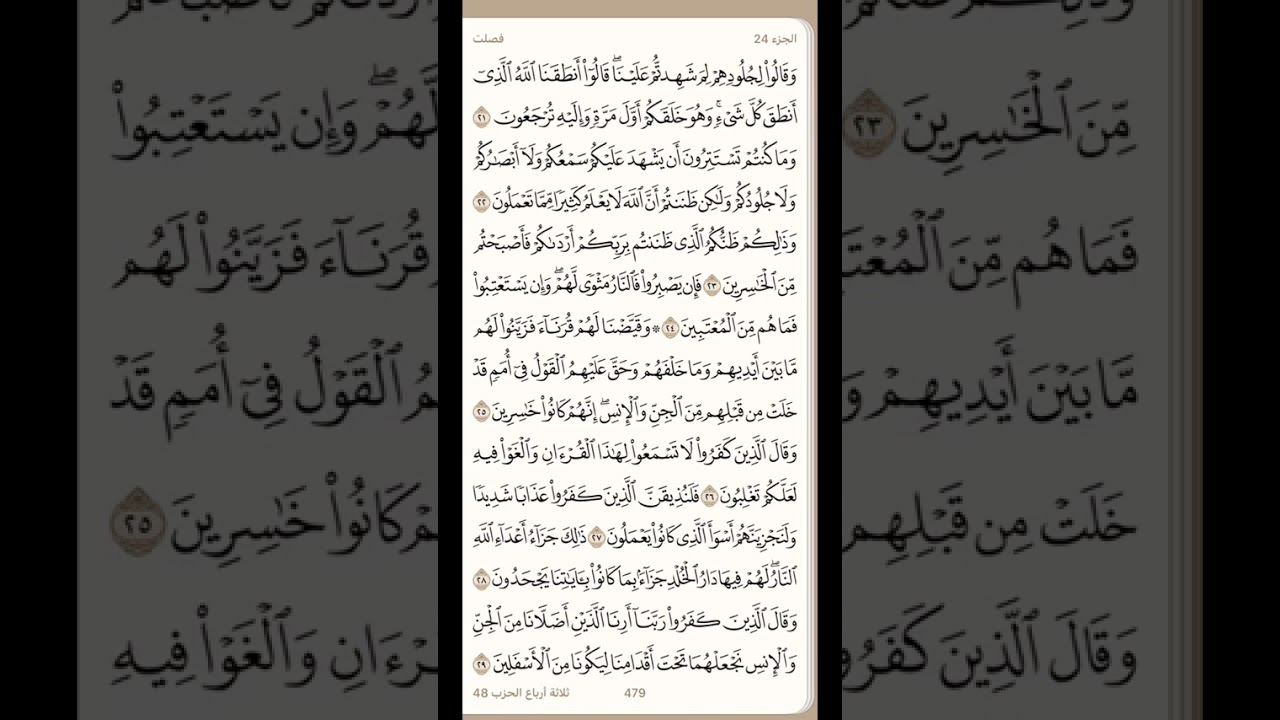 الجزء 24
فصلت
وَقَالُوا۟ لِجُلُودِهِمْ لِمَ شَهِدتُّمْ عَلَيْنَا ۖ قَالُوٓا۟ أَنطَقَنَا ٱللَّهُ ٱلَّذِىٓ
أَنطَقَ كُلَّ شَىْءٍ ۚ وَهُوَ خَلَقَكُمْ أَوَّلَ مَرَّةٍ وَإِلَيْهِ تُرْجَعُونَ ٢١
وَمَا كُنتُمْ تَسْتَتِرُونَ أَن يَشْهَدَ عَلَيْكُمْ سَمْعُكُمْ وَلَآ أَبْصَـٰرُكُمْ
وَلَا جُلُودُكُمْ وَلَـٰكِن ظَنَنتُمْ أَنَّ ٱللَّهَ لَا يَعْلَمُ كَثِيرًا مِّمَّا تَعْمَلُونَ ٢٢
وَذَٰلِكُمْ ظَنُّكُمُ ٱلَّذِى ظَنَنتُم بِرَبِّكُمْ أَرْدَىٰكُمْ فَأَصْبَحْتُم
مِّنَ ٱلْخَـٰسِرِينَ ٢٣ فَإِن يَصْبِرُوا۟ فَٱلنَّارُ مَثْوًى لَّهُمْ ۖ وَإِن يَسْتَعْتِبُوا۟
فَمَا هُم مِّنَ ٱلْمُعْتَبِينَ ٢٤ ۞ وَقَيَّضْنَا لَهُمْ قُرَنَآءَ فَزَيَّنُوا۟ لَهُم
مَّا بَيْنَ أَيْدِيهِمْ وَمَا خَلْفَهُمْ وَحَقَّ عَلَيْهِمُ ٱلْقَوْلُ فِىٓ أُمَمٍ قَدْ
خَلَتْ مِن قَبْلِهِم مِّنَ ٱلْجِنِّ وَٱلْإِنسِ ۖ إِنَّهُمْ كَانُوا۟ خَـٰسِرِينَ ٢٥
وَقَالَ ٱلَّذِينَ كَفَرُوا۟ لَا تَسْمَعُوا۟ لِهَـٰذَا ٱلْقُرْءَانِ وَٱلْغَوْا۟ فِيهِ
لَعَلَّكُمْ تَغْلِبُونَ ٢٦ فَلَنُذِيقَنَّ ٱلَّذِينَ كَفَرُوا۟ عَذَابًا شَدِيدًا
وَلَنَجْزِيَنَّهُمْ أَسْوَأَ ٱلَّذِى كَانُوا۟ يَعْمَلُونَ ٢٧ ذَٰلِكَ جَزَآءُ أَعْدَآءِ ٱللَّهِ
ٱلنَّارُ ۖ لَهُمْ فِيهَا دَارُ ٱلْخُلْدِ ۖ جَزَآءًۢ بِمَا كَانُوا۟ بِـَٔايَـٰتِنَا يَجْحَدُونَ ٢٨
وَقَالَ ٱلَّذِينَ كَفَرُوا۟ رَبَّنَآ أَرِنَا ٱلَّذَيْنِ أَضَلَّانَا مِنَ ٱلْجِنِّ
وَٱلْإِنسِ نَجْعَلْهُمَا تَحْتَ أَقْدَامِنَا لِيَكُونَا مِنَ ٱلْأَسْفَلِينَ ٢٩
479
ثلاثة أرباع الحزب 48